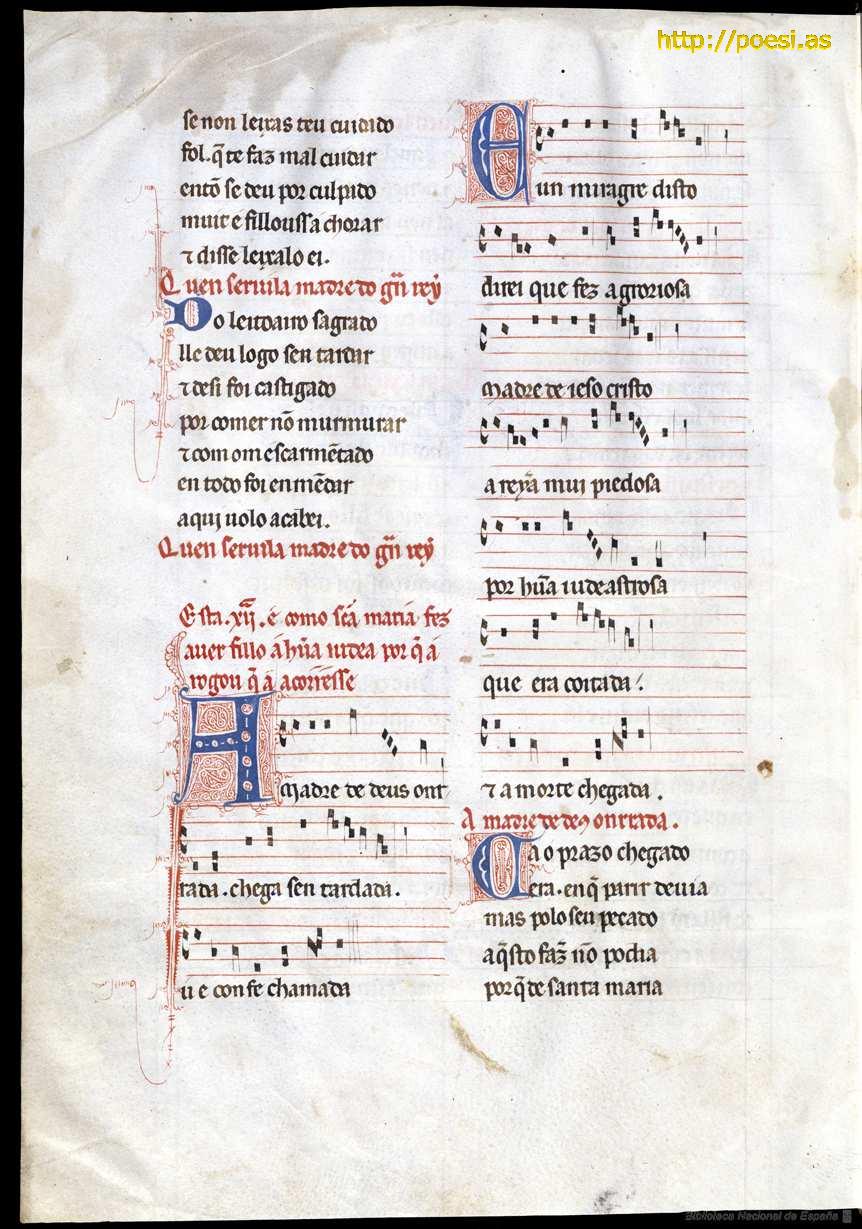 http://poesi.as
se non leixas teu cuidado
fol. q̃ te faz mal cuidar
entõ se deu por culpado
muit e filloussa chorar
⁊ disse leixalo ei.
Quen seruila madre do gñ rey
Do leitoairo sagrado
lle deu logo sen tardar
⁊ desi foi castigado
por comer nõ murmurar
⁊ com om escarmẽtado
en todo foi enmẽdar
aqui uolo acabei.
Quen seruila madre do gñ rey
Esta .xij. é como sc̃a maria fez
auer fillo a hũa iudea por q̃ a
rogou q̃ a acorresse
A Madre de deus onr
rada . chega sen tardada .
u e con fe chamada
E un miragre disto
direi que fez a groriosa
Madre de ieso cristo
a reỹa mui piedosa
por hũa iudea astrosa
que era coitada .
⁊ a morte chegada .
A madre de deꝯ onrrada .
Ca o prazo chegado
era . en q̃ parir deuia
mas polo seu pecado
a q̃sto faz̃ nõ podia
por q̃ de santa maria
Biblioteca Nacional de España